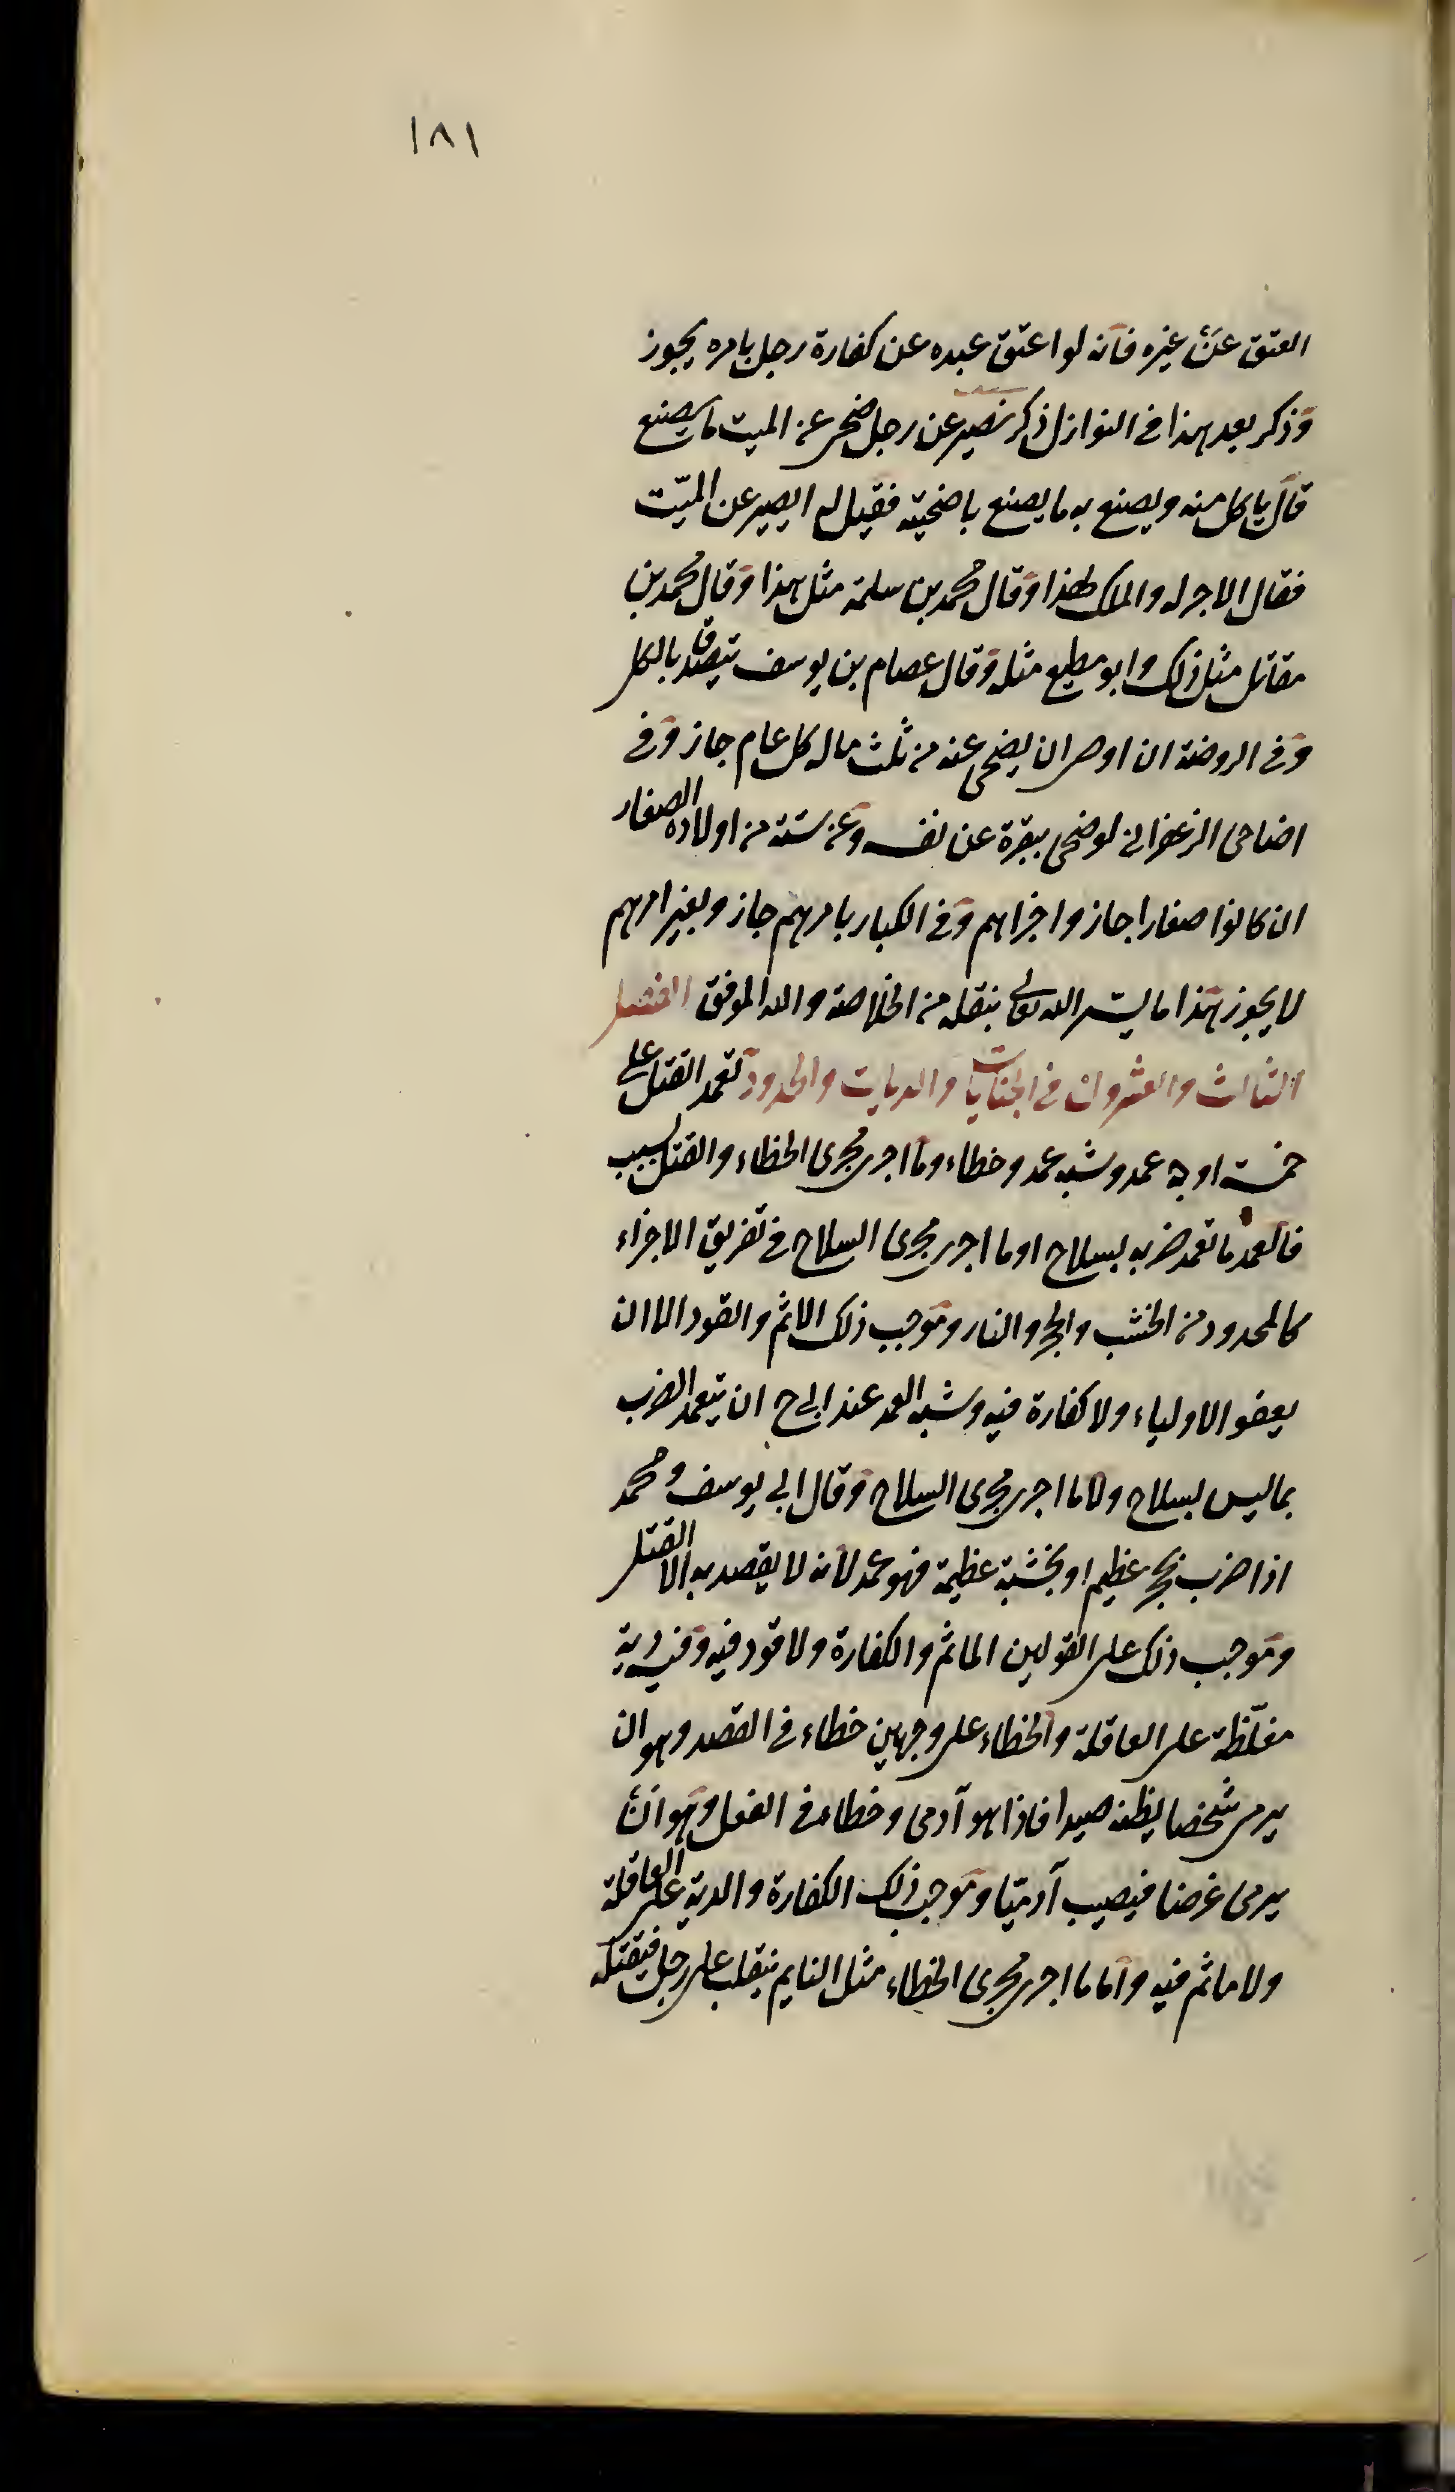 ١٨١
العتق عن غيره فانه لو اعتق عبده عن كفارة رجل بامره يجوز
وذكر بعد هذا فى النوازل ذكر نصير عن رجل ضحى عن الميت ما يصنع
قال ياكل منه ويصنع به ما يصنع باضحيته فقيل له ايصير عن الميّت
فقال الاجر له والملك لهذا وقال محمد بن سلمة مثل هذا وقال محمد بن
مقاتل مثل ذلك وابو مطيع مثله وقال عصام بن يوسف يتصدق بالكل
وفى الروضة ان اوصى ان يضحى عنه من ثلث ماله كل عام جاز وفى
اضاحى الزعفرانى لو ضحى ببقرة عن نفسه وعن ستة من اولاده الصغار
ان كانوا صغارا جاز واجزاهم وفى الكبار بامرهم جاز وبغير امرهم
لا يجوز هذا ما يسر الله تعالى بنقله من الخلاصة والله الموفق الفصل
الثالث والعشرون فى الجنايات والديات والحدود تعمد القتل على
خمسة اوجه عمد وشبه عمد وخطاء وما اجرى مجرى الخطاء والقتل بسبب
فالعمد ما تعمد ضربه بسلاح او ما اجرى مجرى السلاح فى تفريق الاجزاء
كالمحدود من الخشب والحجر والنار وموجب ذلك الاثم والقود الا ان
يعفو الاولياء ولا كفارة فيه وشبه العمد عند ابى ح ان يتعمد الضرب
بما ليس بسلاح ولا ما اجرى مجرى السلاح وقال ابى يوسف ومحمد
اذا ضرب بحجر عظيم او بخشبة عظيمة فهو عمد لانه لا يقصد به الا القتل
وموجب ذلك على القولين الماثم والكفارة ولا قود فيه وفيه دية
مغلّظة على العاقلة والخطاء على وجهين خطاء فى القصد وهو ان
يرمى شخصا يظنه صيدا فاذا هو آدمى وخطاء فى الفعل وهو ان
يرمى غرضا فيصيب آدميّا وموجب ذلك الكفارة والدية على العاقلة
ولا ماثم فيه واما ما اجرى مجرى الخطاء مثل النايم ينقلب على رجل فيقتله